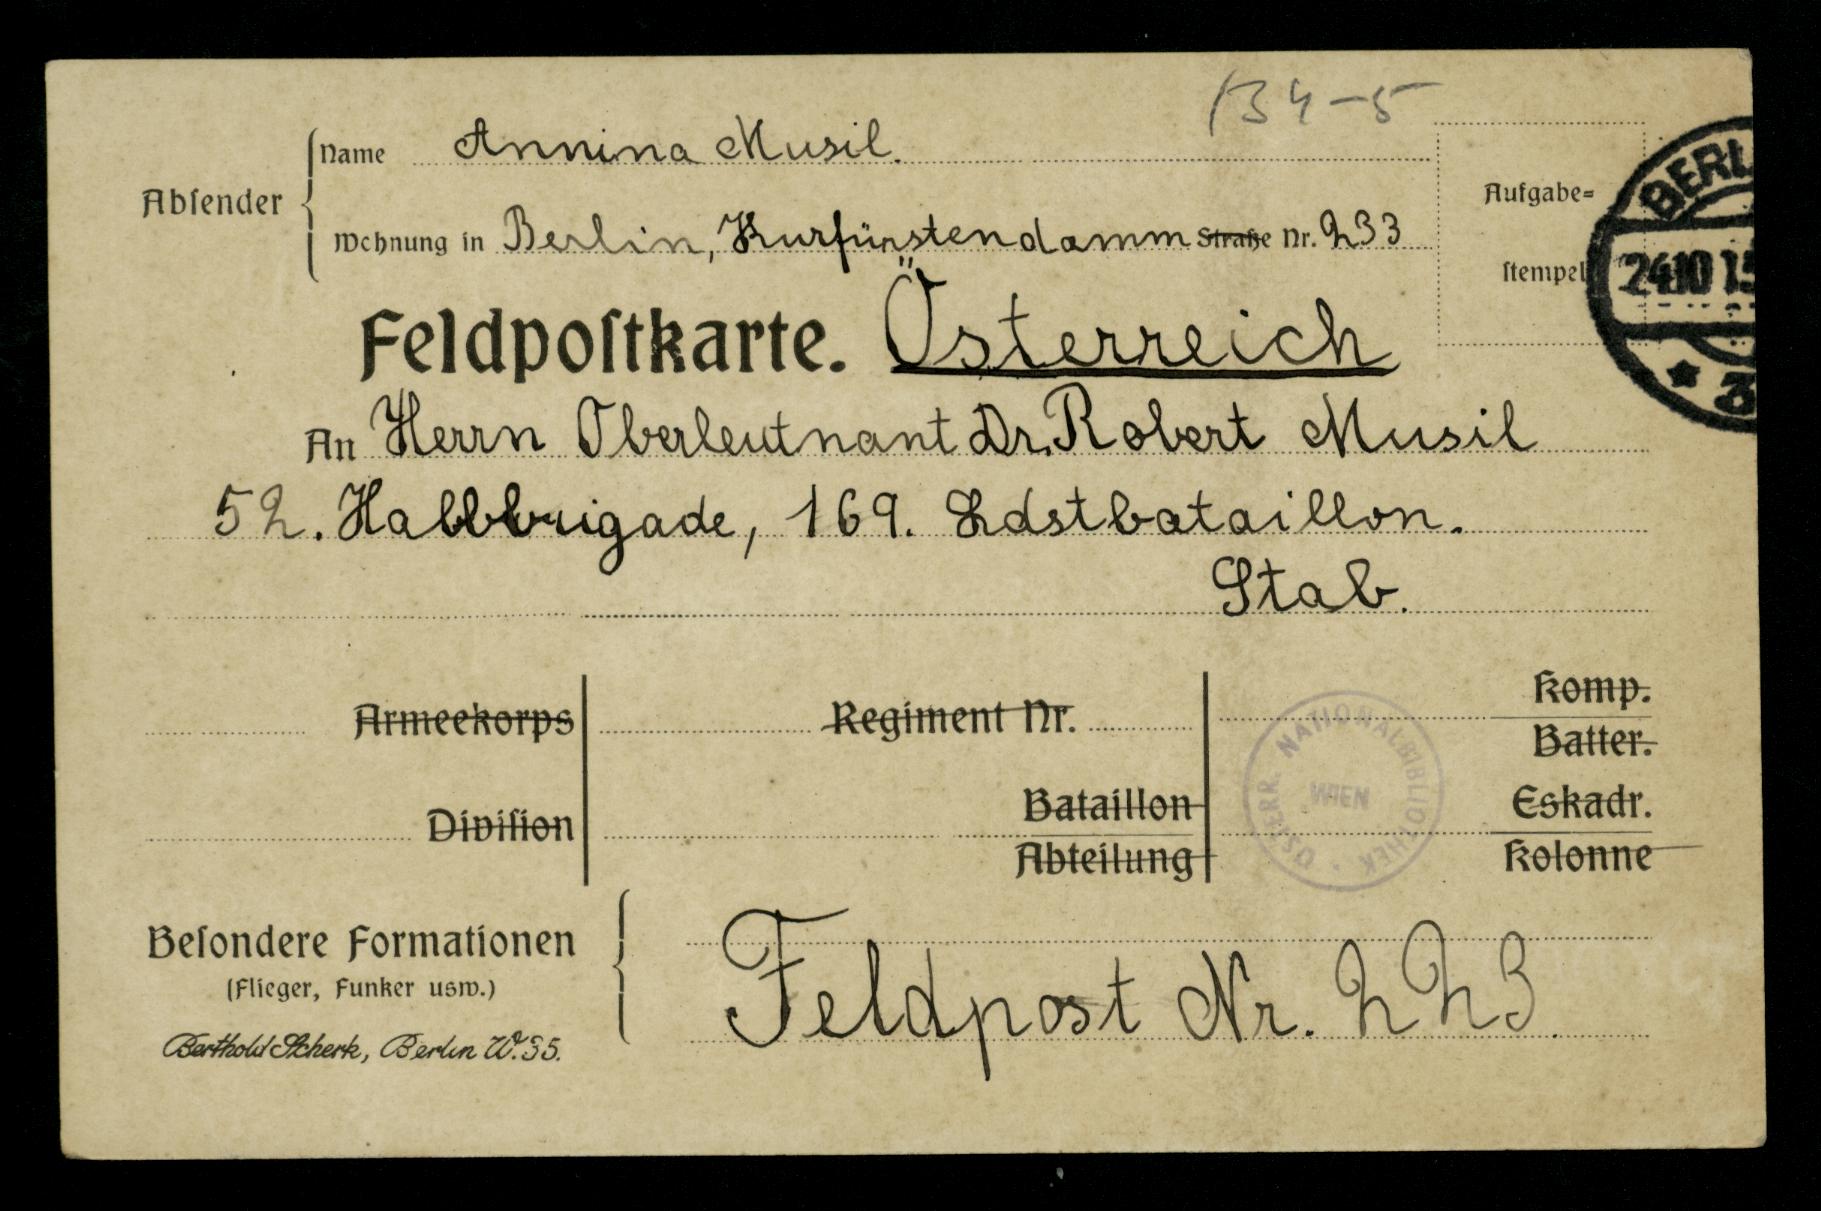 134-5
Absender
Name Annina Musil.
Wohnung in Berlin, Kurfürstendamm Straße Nr. 233
Aufgabe=
stempel
BERL
24.10 15
3
Feldpostkarte. Österreich
An Herrn Oberleutnant Dr. Robert Musil
52. Halbbrigade, 169. Ldstbataillon.
Stab.
Armeekorps
Regiment Nr.
Komp.
Batter.
Division
Bataillon
Abteilung
Eskadr.
Kolonne
ÖSTERR. NATIONALBIBLIOTHEK
WIEN
Besondere Formationen
(Flieger, Funker usw.)
Feldpost Nr. 223.
Berthold Scherk, Berlin W. 35.